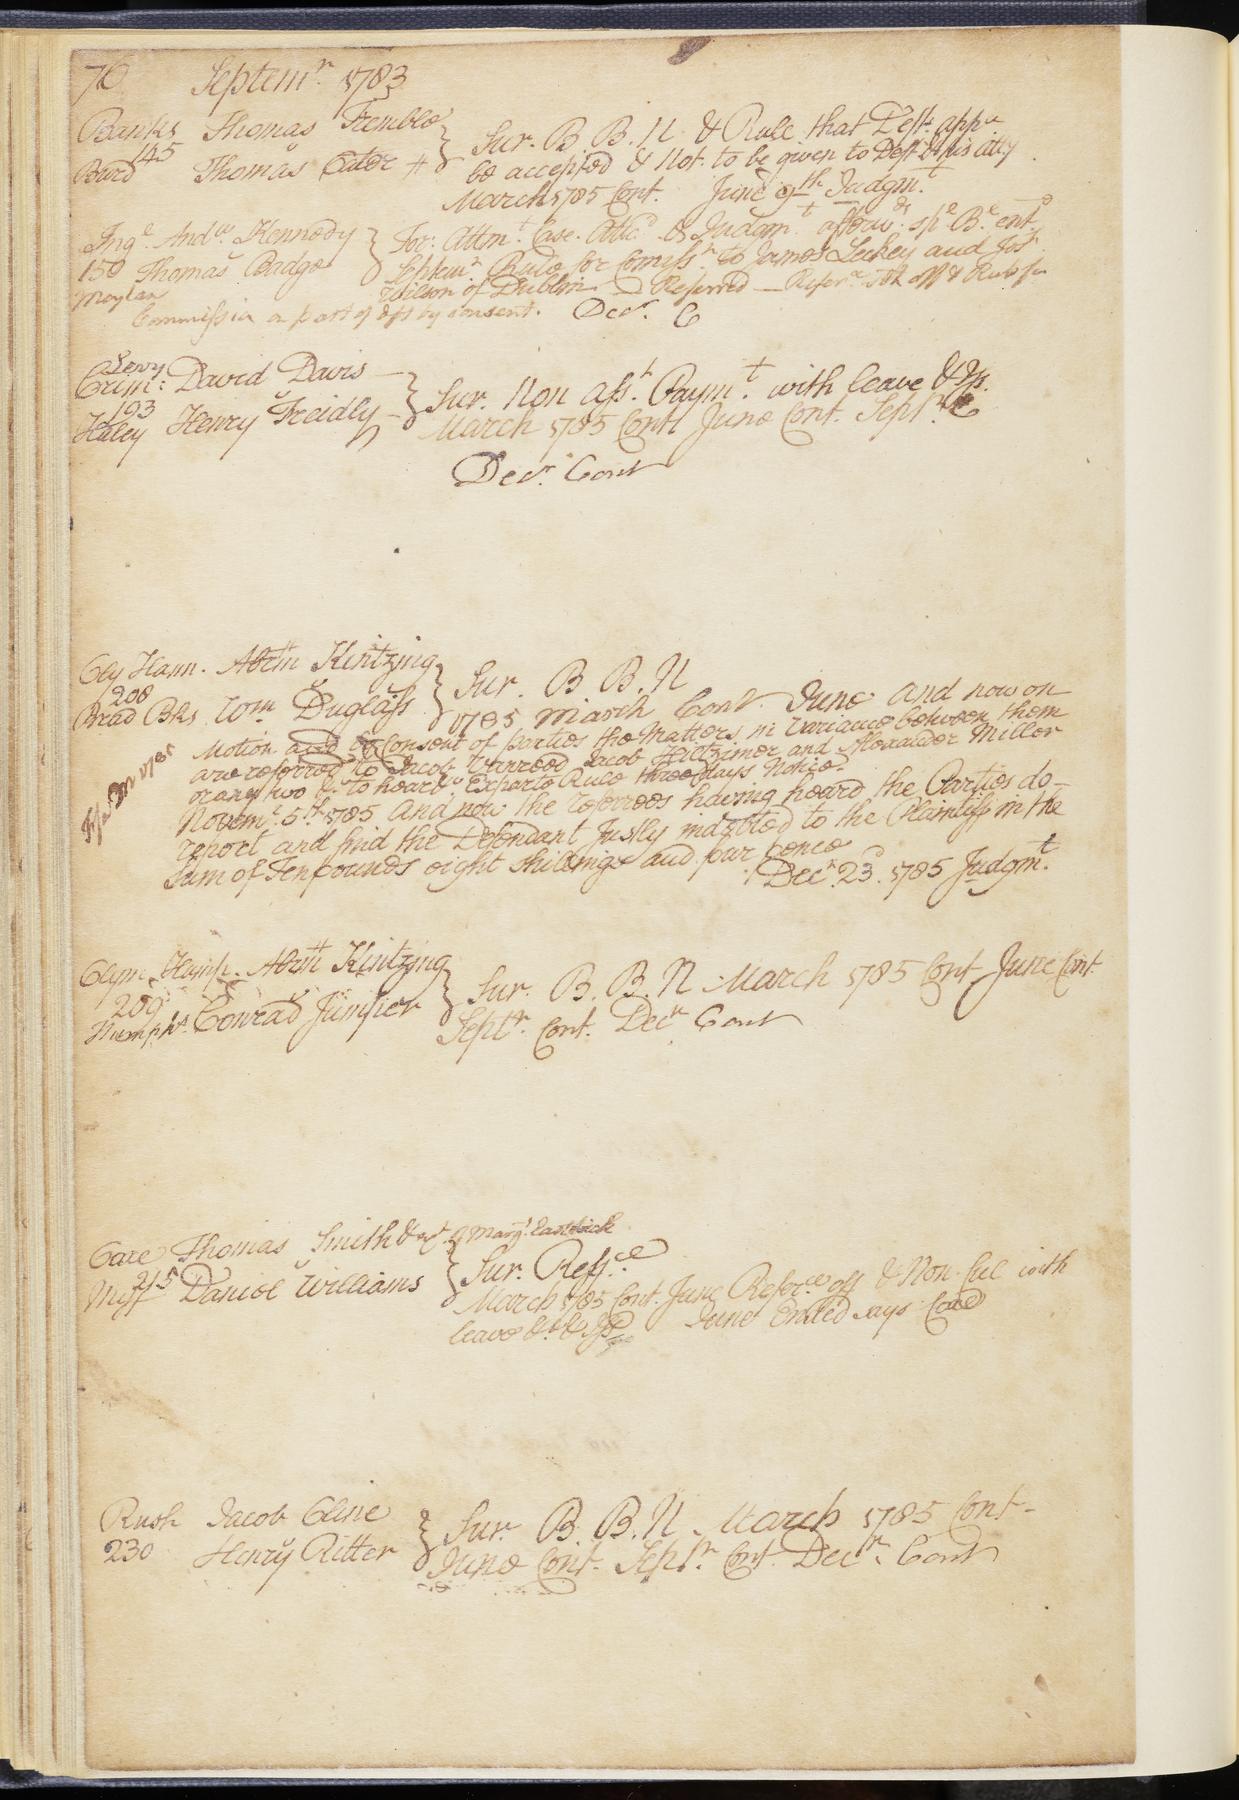 76 Septemr. 1783
Banks Thomas Tremble
145
Bard Thomas Cater
Sur. B. B. N. & Rule that Deft. appe.
be accepted & Not. to be given to Deft. & his atty
March 1785 Cont. June 9th Judgmt.
Inge. Andw. Kennedy
150 Thomas Badge
Moylan
For: Attmt. Case. Attd. & Judgmt. afterwds. spe. Be. entd.
Septemr. Rule for Comissn. to James Leckey and Jos.
Wilson of Dublin Referred Refer. off & Rule for
Commission on part of dft by consent. Decr. C
Levy
David Davis
193
Haley Henry Freidly
Sur. Non Asst. Paymt. with leave & Iss.
March 1785 Cont June Cont. Septr. C
Decr. Cont
Cly Ham. Abrm Kintzing
208
Brad Bks Wm Duglass
Sur. B. B. N
1785 March Cont. June and now on
Motion and by Consent of parties the Matters in variance between them
are referred to Jacob Jacob Hiltzimer and Alexander Miller
or any two &c. to heard. Exparte Rule three days Notice
Novemr. 5th 1785 And now the referrees having heard the Parties do
report and find the Defendant Justly indebted to the Plaintiff in the
Sum of Ten pounds eight shillings and four pence
Decr. 23d. 1785 Judgmt.
Clym Hamp. Abrm Kintzing
209
Humphs. Conrad Jumper
Sur. B. B. N March 1785 Cont June Cont.
Septr. Cont. Decr Cont
Thomas Smith & wt. Margt. Eastwick
215
Miff Daniel Williams
Sur. Reffce
March 1785 Cont. June Referce off & Non Cul with
leave &c. & Iss June Ended says Care
Rush Jacob Cline
230 Henry Ritter
Sur. B. B. N. March 1785 Cont-
June Cont- Septr. Cont. Decr. Cont